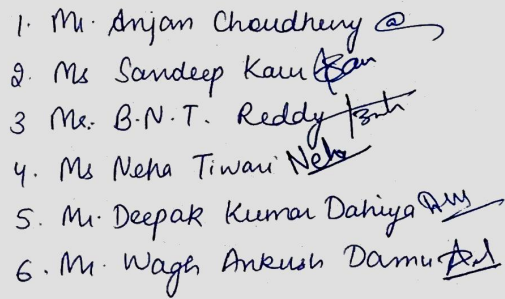 1. Mr. Anjan Choudhery
2. Ms Sandeep Kaur
3 Mr. B.N.T. Reddy
4. Ms Neha Tiwari Neha
5. Mr. Deepak Kumar Dahiya
6. Mr. Wagh Ankush Damu